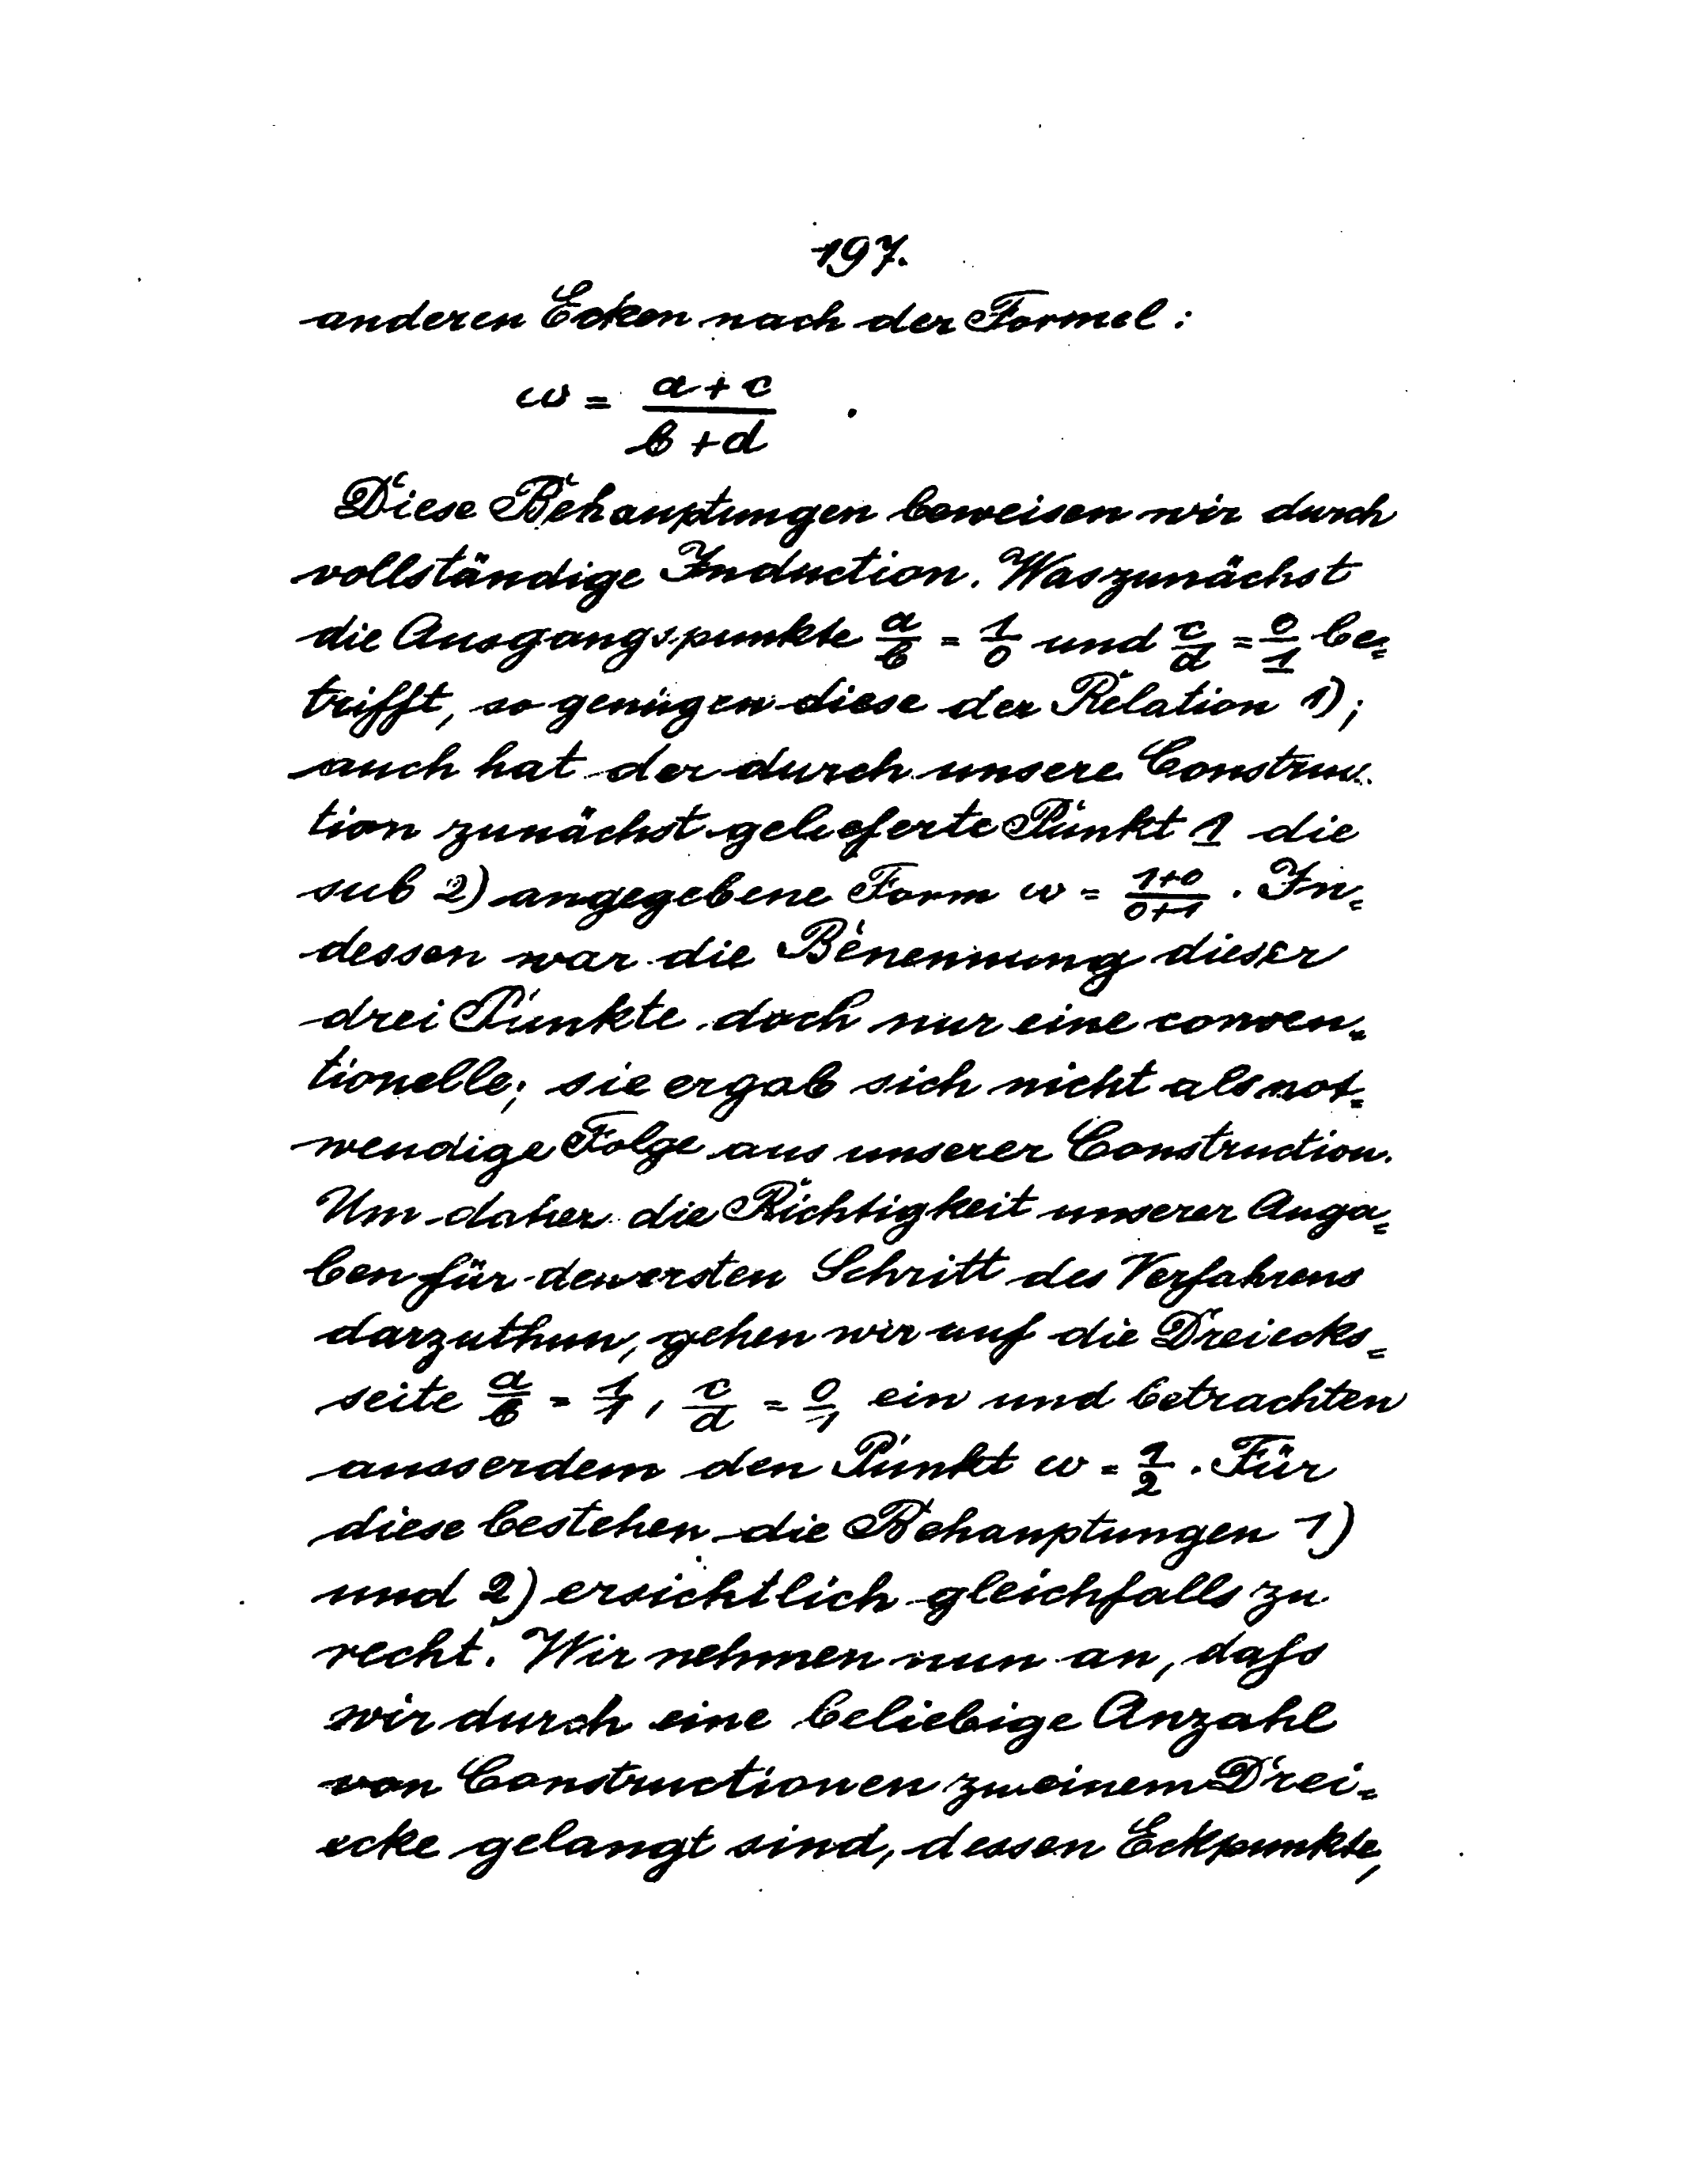 197.
anderen Ecken nach der Formel:
ω = (a+c)/(b+d) .
Diese Behauptungen beweisen wir durch
vollständige Induction. Was zunächst
die Ausgangspunkte a/b = 1/0 und c/d = 0/1 be=
trifft, so genügen diese der Relation 1);
auch hat der durch unsere Construc=
tion zunächst gelieferte Punkt 1 die
sub 2) angegebene Form ω = (1+0)/(0+1). In=
dessen war die Benennung dieser
drei Punkte doch nur eine conven=
tionelle; sie ergab sich nicht als not=
wendige Folge aus unserer Construction.
Um daher die Richtigkeit unserer Anga=
ben für den ersten Schritt des Verfahrens
darzuthun, gehen wir auf die Dreiecks=
seite a/b = 1/1, c/d = 0/1 ein und betrachten
ausserdem den Punkt ω = 1/2. Für
diese bestehen die Behauptungen 1)
und 2) ersichtlich gleichfalls zu
recht. Wir nehmen nun an, dafs
wir durch eine beliebige Anzahl
von Constructionen zu einem Drei=
ecke gelangt sind, dessen Eckpunkte,